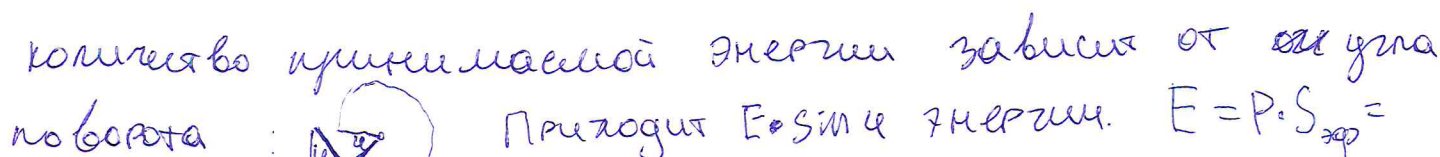 количество принимаемой энергии зависит от угла
поворота : Приходит E•sin φ энергии. E = P·Sэф =